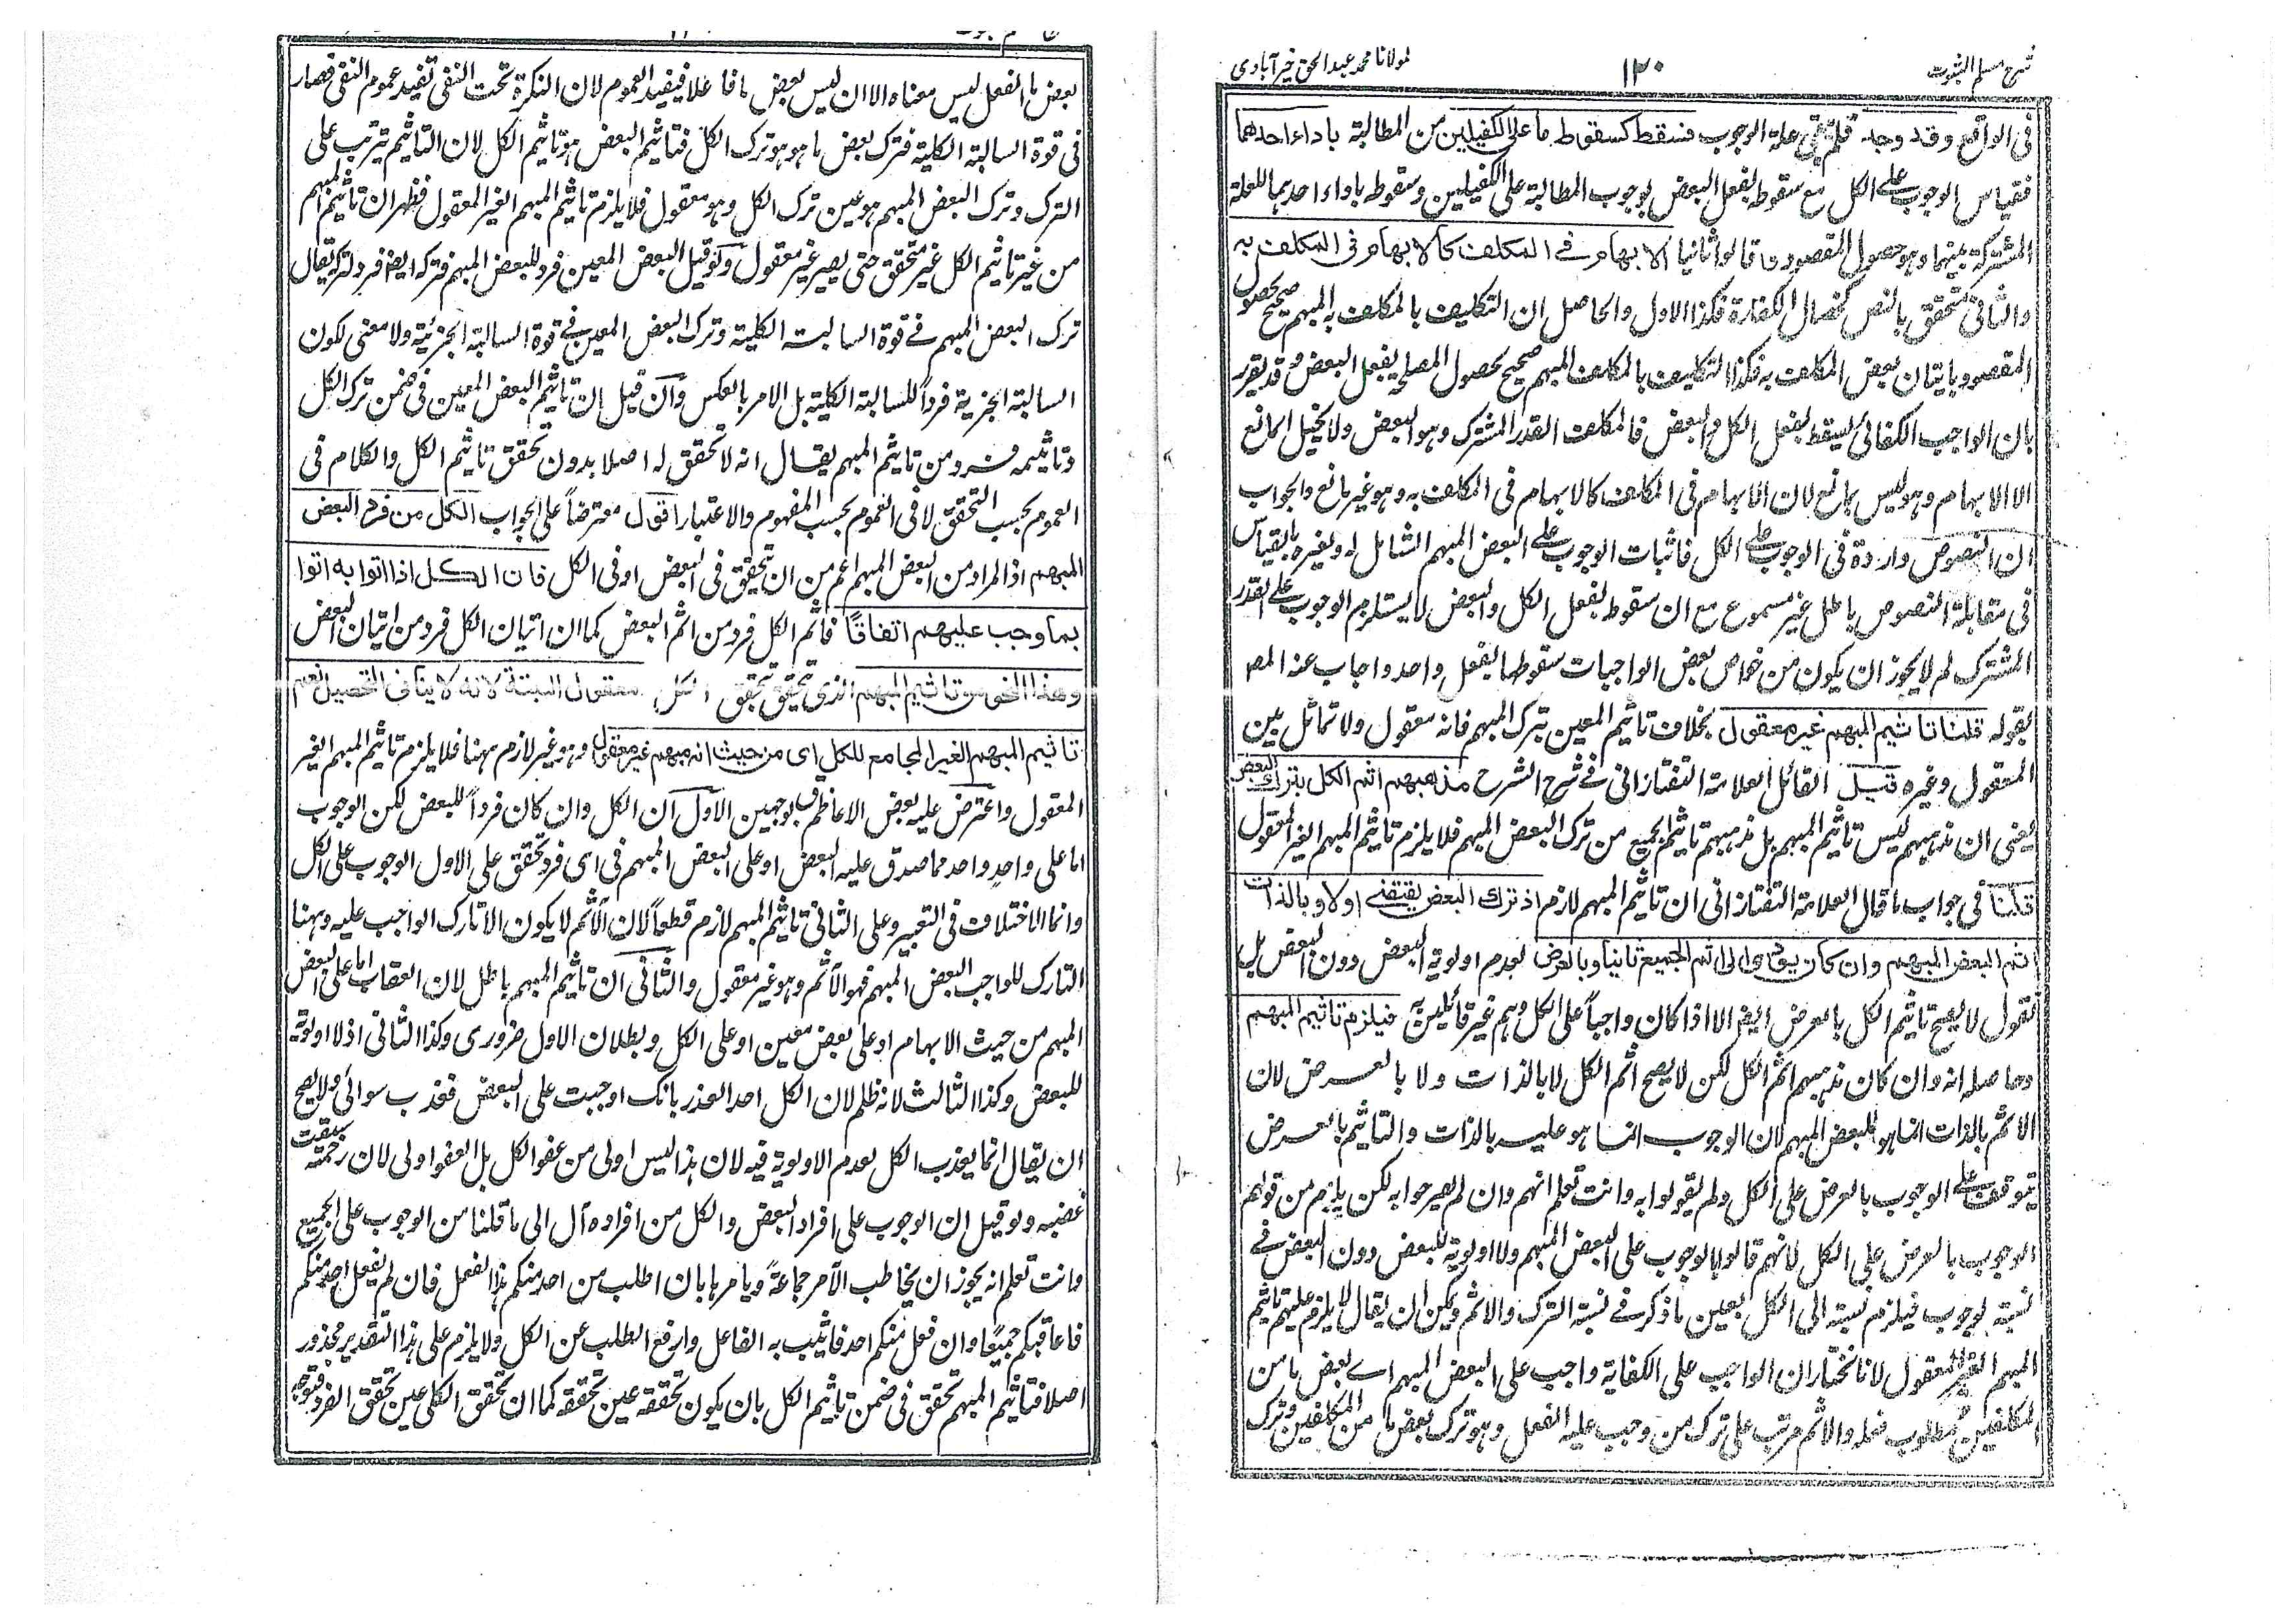 شرح مسلم الثبوت
١٢٠
لمولانا محمد عبد الحق خيرآبادى
فى الواقع وقد وجد فلم يبق علة الوجوب فسقط كسقوط ما على الكفيلين من المطالبة باداء احدهما
فقياس الوجوب على الكل مع سقوطه بفعل البعض بوجوب المطالبة على الكفيلين وسقوطه باداء احدهما للعلة
المشتركة بينهما وهو حصول المقصود قالوا ثانيا الابهام فى المكلف كالابهام فى المكلف به
والثانى متحقق بالنص كخصال الكفارة فكذا الاول والحاصل ان التكليف بالمكلف به المبهم صحيح لحصول
المقصود باتيان بعض المكلف به فكذا التكليف بالمكلف المبهم صحيح لحصول المصلحة بفعل البعض وقد يقرر
بان الواجب الكفائى يسقط بفعل الكل والبعض فالمكلف القدر المشترك وهو البعض ولا يخيل المانع
الا الابهام وهو ليس بمانع لان الابهام فى المكلف كالابهام فى المكلف به وهو غير مانع والجواب
ان النصوص واردة فى الوجوب على الكل فاثبات الوجوب على البعض المبهم الشامل له ولغيره بالقياس
فى مقابلة النصوص باطل غير مسموع مع ان سقوطه بفعل الكل والبعض لا يستلزم الوجوب على القدر
المشترك لم لا يجوز ان يكون من خواص بعض الواجبات سقوطها بفعل واحد واجاب عنه المصـ
بقوله قلنا تاثيم المبهم غير معقول بخلاف تاثيم المعين بترك المبهم فانه معقول ولا تماثل بين
المعقول وغيره قيل القائل العلامة التفتازانى فى شرح الشرح مذهبهم اثم الكل بترك البعض
يعنى ان مذهبهم ليس تاثيم المبهم بل مذهبهم تاثيم الجميع من ترك البعض المبهم فلا يلزم تاثيم المبهم الغير المعقول
قلنا فى جواب ما قال العلامة التفتازانى ان تاثيم المبهم لازم اذ ترك البعض يقتضى اولا وبالذات
اثم البعض المبهم وان كان يؤل الى اثم الجميع ثانيا وبالعرض لعدم اولوية البعض دون البعض بل
نقول لا يصح تاثيم الكل بالعرض ايضا الا اذا كان واجباً على الكل وهم غير قائلين به فيلزم تاثيم المبهم
وحاصله انه وان كان مذهبهم اثم الكل لكن لا يصح اثم الكل لا بالذات ولا بالعرض لان
الاثم بالذات انما هو للبعض المبهم لان الوجوب انما هو عليه بالذات والتاثيم بالعرض
يتوقف على الوجوب بالعرض على الكل ولم يقولوا به وانت تعلم انهم وان لم يصرحوا به لكن يلزم من قولهم
الوجوب بالعرض على الكل لانهم قالوا بالوجوب على البعض المبهم ولا اولوية للبعض دون البعض فى
نسبة الوجوب فيلزم نسبته الى الكل بعين ما ذكر فى نسبة الترك والاثم ويمكن ان يقال لا يلزم عليهم تاثيم
المبهم الغير المعقول لانا نختار ان الواجب على الكفاية واجب على البعض المبهم اى بعض ما من
المكلفين مطلوب فعله والاثم مرتب على ترك من وجب عليه الفعل وهو ترك بعض ما من المكلفين وترك
بعض ما الفعل ليس معناه الا ان ليس بعض ما فاعلا فيفيد العموم لان النكرة تحت النفى تفيد عموم النفى فصار
فى قوة السالبة الكلية فترك بعض ما هو هو ترك الكل فتاثيم البعض هو تاثيم الكل لان التاثيم يترتب على
الترك وترك البعض المبهم هو عين ترك الكل وهو معقول فلا يلزم تاثيم المبهم الغير المعقول فظهر ان تاثيم المبهم
من غير تاثيم الكل غير متحقق حتى يصير غير معقول ولو قيل البعض المعين فرد للبعض المبهم فتركه ايضا فرد لتركه يقال
ترك البعض المبهم فى قوة السالبة الكلية وترك البعض المعين فى قوة السالبة الجزئية ولا معنى لكون
السالبة الجزئية فرداً للسالبة الكلية بل الامر بالعكس وان قيل ان تاثيم البعض المعين فى ضمن ترك الكل
وتاثيمه فرد من تاثيم المبهم يقال انه لا تحقق له اصلا بدون تحقق تاثيم الكل والكلام فى
العموم بحسب التحقق لا فى العموم بحسب المفهوم والاعتبار اقول معترضاً على الجواب الكل من فرد البعض
المبهم اذ المراد من البعض المبهم اعم من ان يتحقق فى البعض او فى الكل فان الكل اذا اتوا به اتوا
بما وجب عليهم اتفاقاً فاثم الكل فرد من اثم البعض كما ان اتيان الكل فرد من اتيان البعض
وهذا النحو من تاثيم المبهم الذى تحقق بتحقق الكل معقول البتة لانه لا ينافى التحصيل نعم
تاثيم المبهم الغير المجامع للكل اى من حيث انه مبهم غير معقول وهو غير لازم ههنا فلا يلزم تاثيم المبهم الغير
المعقول واعترض عليه بعض الاعاظم بوجهين الاول ان الكل وان كان فرداً للبعض لكن الوجوب
اما على واحد واحد مما صدق عليه البعض او على البعض المبهم فى اى فرد تحقق على الاول الوجوب على الكل
وانما الاختلاف فى التعبير وعلى الثانى تاثيم المبهم لازم قطعاً لان الآثم لا يكون الا تارك الواجب عليه وههنا
التارك للواجب البعض المبهم فهو الآثم وهو غير معقول والثانى ان تاثيم المبهم باطل لان العقاب اما على البعض
المبهم من حيث الابهام او على بعض معين او على الكل وبطلان الاول ضرورى وكذا الثانى اذ لا اولوية
للبعض وكذا الثالث لانه ظلم لان الكل احد العذر بانك اوجبت على البعض فعذب سوائى ولا يصح
ان يقال انما يعذب الكل لعدم الاولوية فيه لان هذا ليس اولى من عفو الكل بل العفو اولى لان رحمته سبقت
غضبه ولو قيل ان الوجوب على افراد البعض والكل من افراده آل الى ما قلنا من الوجوب على الجميع
وانت تعلم انه يجوز ان يخاطب الآمر جماعةً ويامرها بان اطلب من احد منكم هذا الفعل فان لم يفعل احد منكم
فاعاقبكم جميعًا وان فعل منكم احد فاثيب به الفاعل وارفع الطلب عن الكل ولا يلزم على هذا التقدير محذور
اصلا فتاثيم المبهم تحقق فى ضمن تاثيم الكل بان يكون تحققه عين تحققه كما ان تحقق الكلى عين تحقق الفرد